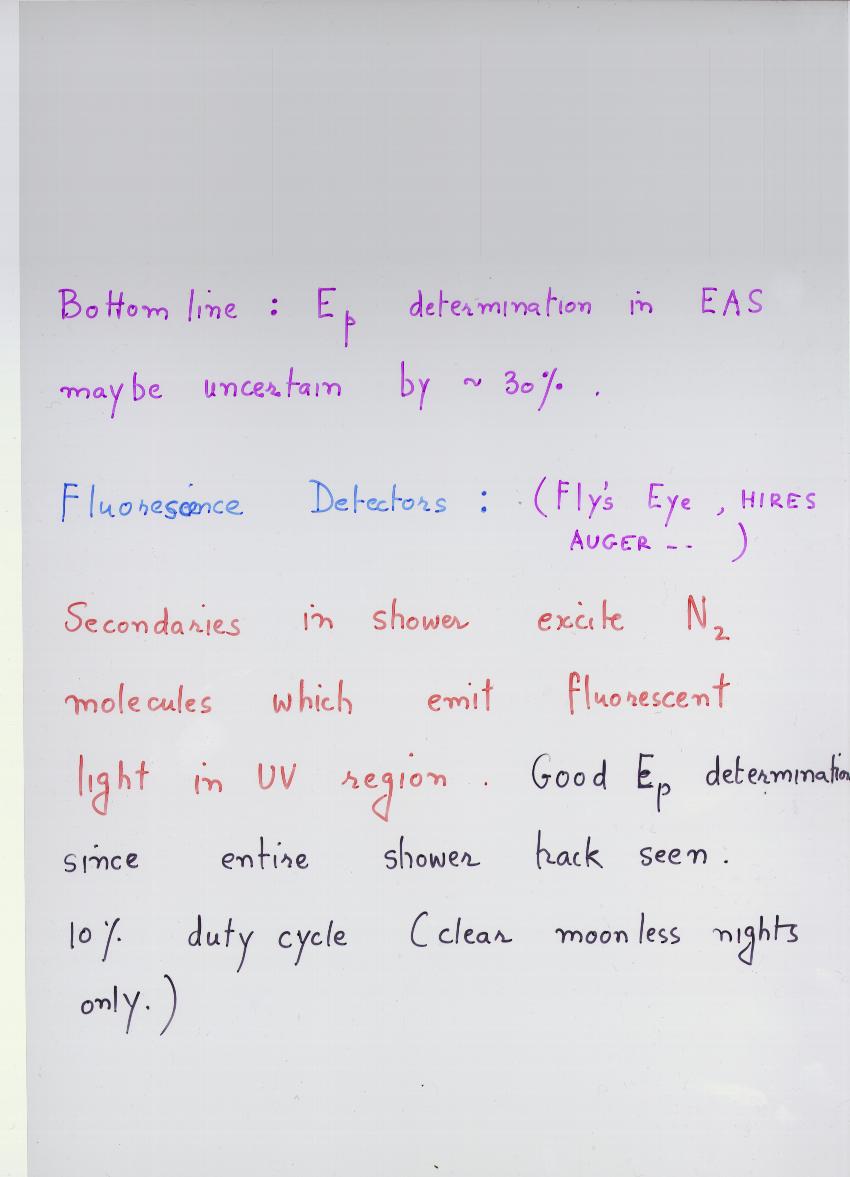 Bottom line : Ep determination in EAS
maybe uncertain by ~ 30% .
Fluorescence Detectors : (Fly's Eye , HIRES
AUGER -- )
Secondaries in shower excite N2
molecules which emit fluorescent
light in UV region . Good Ep determination
since entire shower track seen .
10% duty cycle (clear moonless nights
only.)